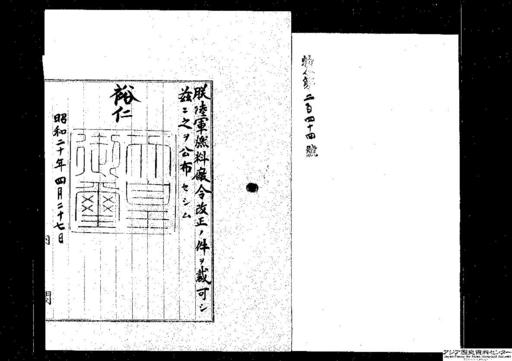 勅令第二百四十四號
朕陸軍燃料廠令改正ノ件ヲ裁可シ
茲ニ之ヲ公布セシム
裕仁
天皇御璽
昭和二十年四月二十七日
内閣
アジア歴史資料センター